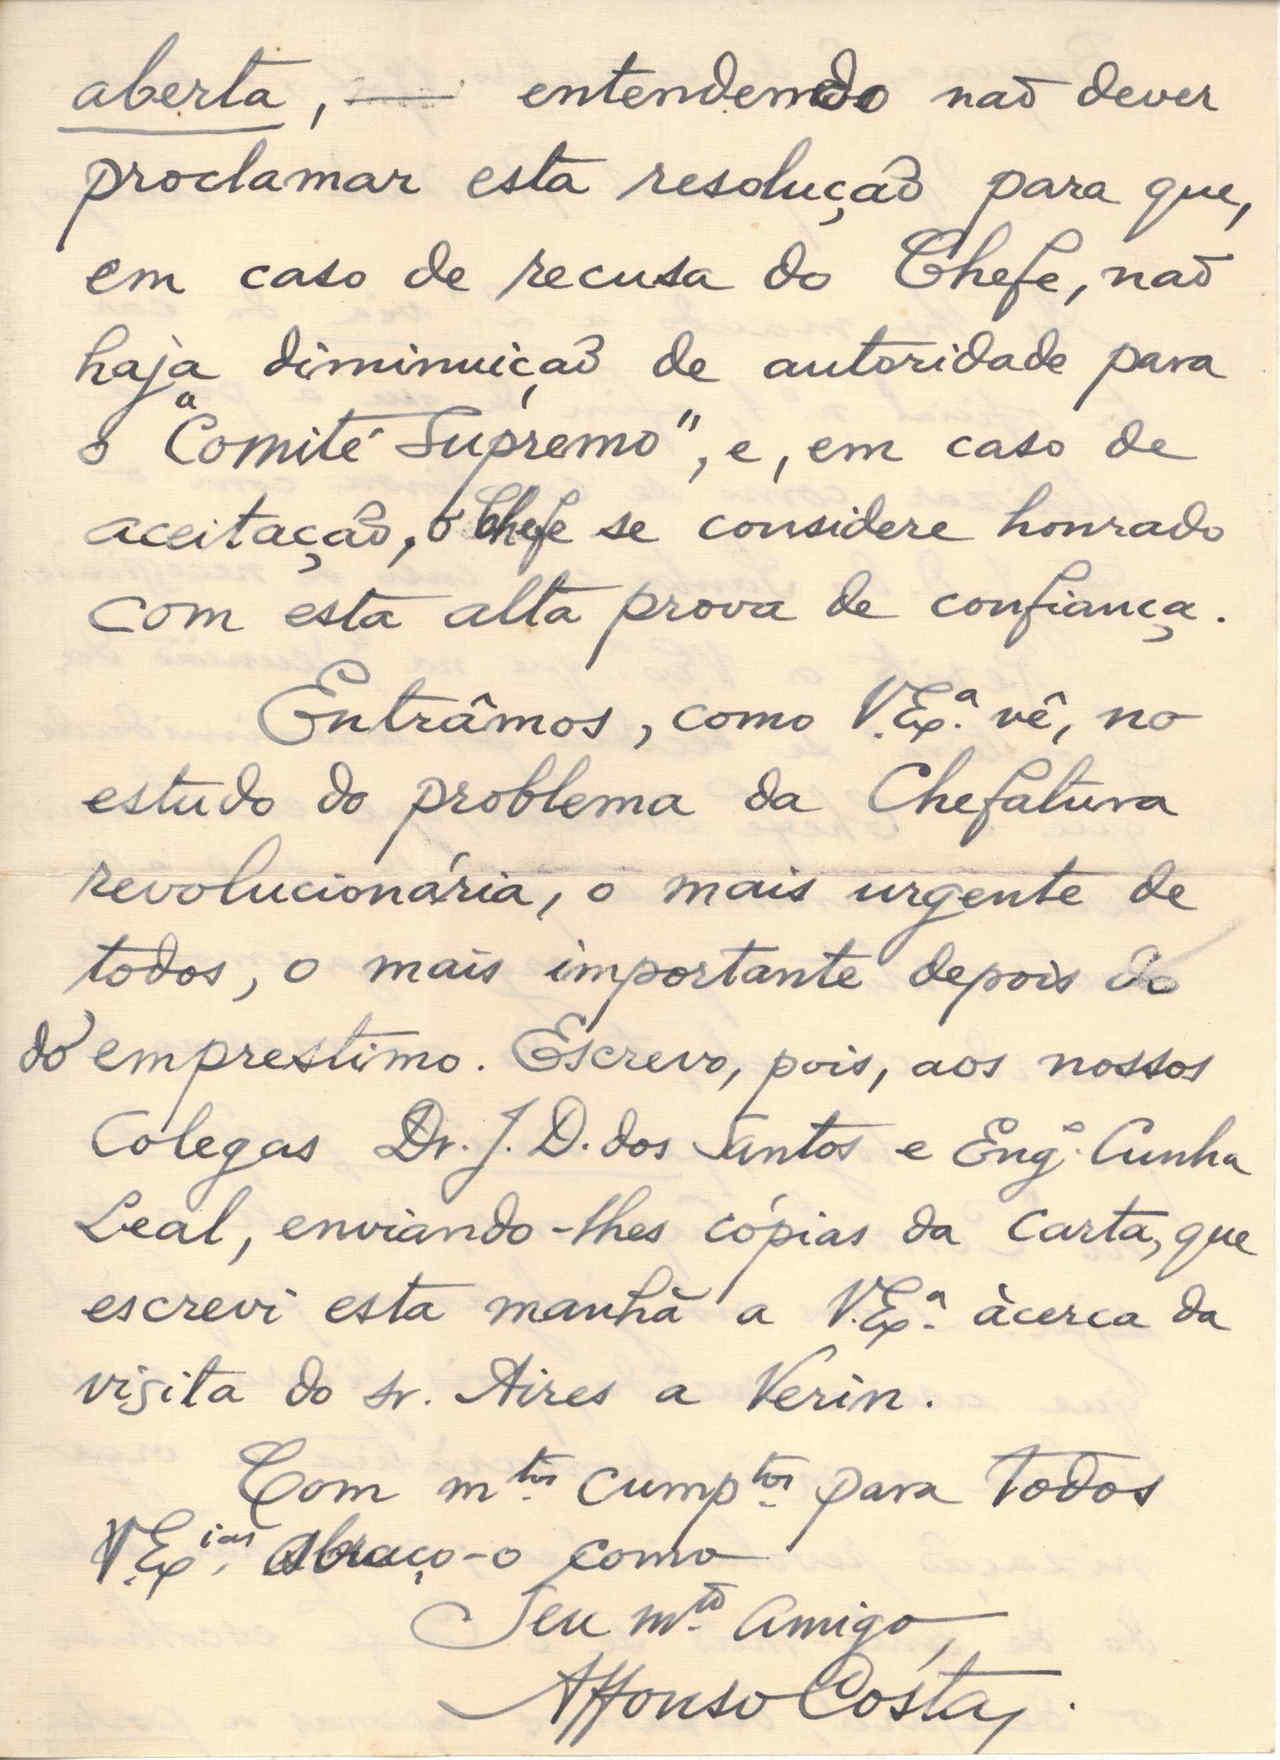 aberta, — entendendo não dever
proclamar esta resolução para que,
em caso de recusa do Chefe, não
haja diminuição de autoridade para
o "Comité Supremo", e, em caso de
aceitação, o Chefe se considere honrado
com esta alta prova de confiança.
Entrâmos, como V. Ex.ª vê, no
estudo do problema da Chefatura
revolucionária, o mais urgente de
todos, o mais importante depois do
do emprestimo. Escrevo, pois, aos nossos
Colegas Dr. J. D. dos Santos e Eng.º Cunha
Leal, enviando-lhes cópias da carta, que
escrevi esta manhã a V. Ex.ª àcerca da
visita do sr. Aires a Verin.
Com m.tos cump.tos para todos
V. Ex.ias, abraço-o como
Seu m.to amigo,
Affonso Costa.